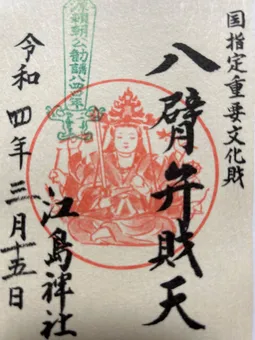 国指定重要文化財
八臂弁財天
江島神社
令和四年三月十五日